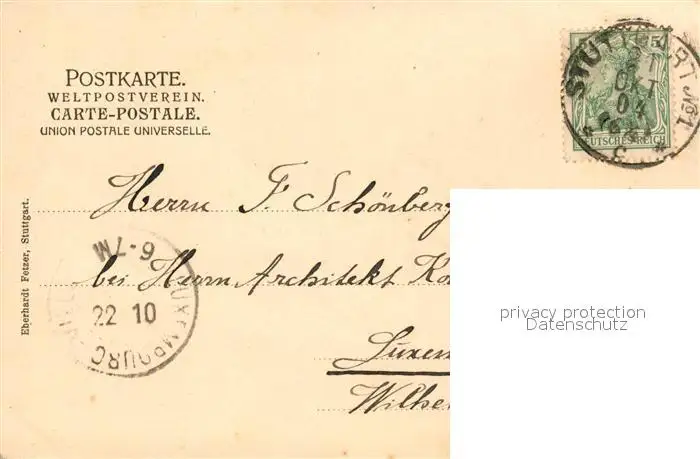 POSTKARTE.
WELTPOSTVEREIN.
CARTE-POSTALE.
UNION POSTALE UNIVERSELLE.
5
STUTTGART No 1
OKT
04
DEUTSCHES REICH
Herrn F. Schönberg
bei Herrn Architekt
Luxem
Wilhe
Eberhardt Fetzer, Stuttgart.
6-7M
22 10
LUXEMBOURG
privacy protection
Datenschutz